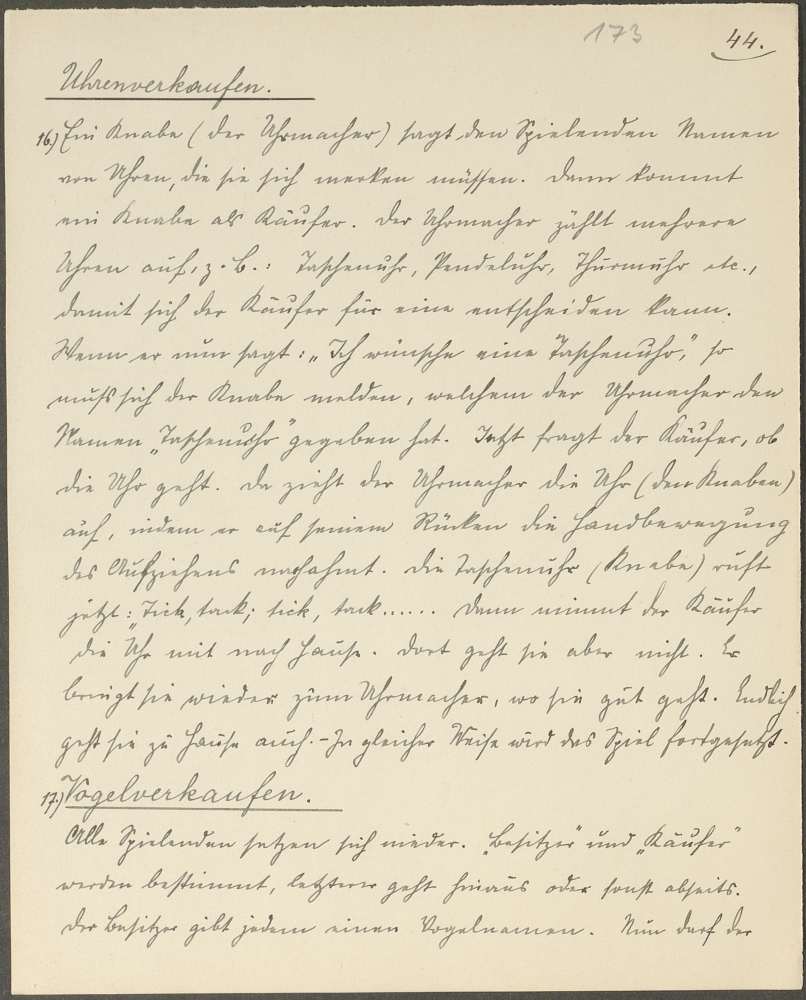 173
44.
Uhrenverkaufen.
16.) Ein Knabe (der Uhrmacher) sagt den Spielenden Namen
von Uhren, die sie sich merken müssen. Dann kommt
ein Knabe als Käufer. Der Uhrmacher zählt mehrere
Uhren auf, z. B.: Taschenuhr, Pendeluhr, Thurmuhr etc.,
damit sich der Käufer für eine entscheiden kann.
Wenn er nun sagt: „Ich wünsche eine Taschenuhr“, so
muss sich der Knabe melden, welchem der Uhrmacher den
Namen „Taschenuhr“ gegeben hat. Jetzt fragt der Käufer, ob
die Uhr geht. Da zieht der Uhrmacher die Uhr (den Knaben)
auf, indem er auf seinem Rücken die Handbewegung
des Aufziehens nachahmt. Die Taschenuhr (Knabe) ruft
jetzt: „Tick, tack; tick, tack...... Dann nimmt der Käufer
die Uhr mit nach Hause. Dort geht sie aber nicht. Er
bringt sie wieder zum Uhrmacher, wo sie gut geht. Endlich
geht sie zu Hause auch. – In gleicher Weise wird das Spiel fortgesetzt.
17.) Vogelverkaufen.
Alle Spielenden setzen sich nieder. „Besitzer“ und „Käufer“
werden bestimmt, letzterer geht hinaus oder sonst abseits.
Der Besitzer gibt jedem einen Vogelnamen. Nun darf der